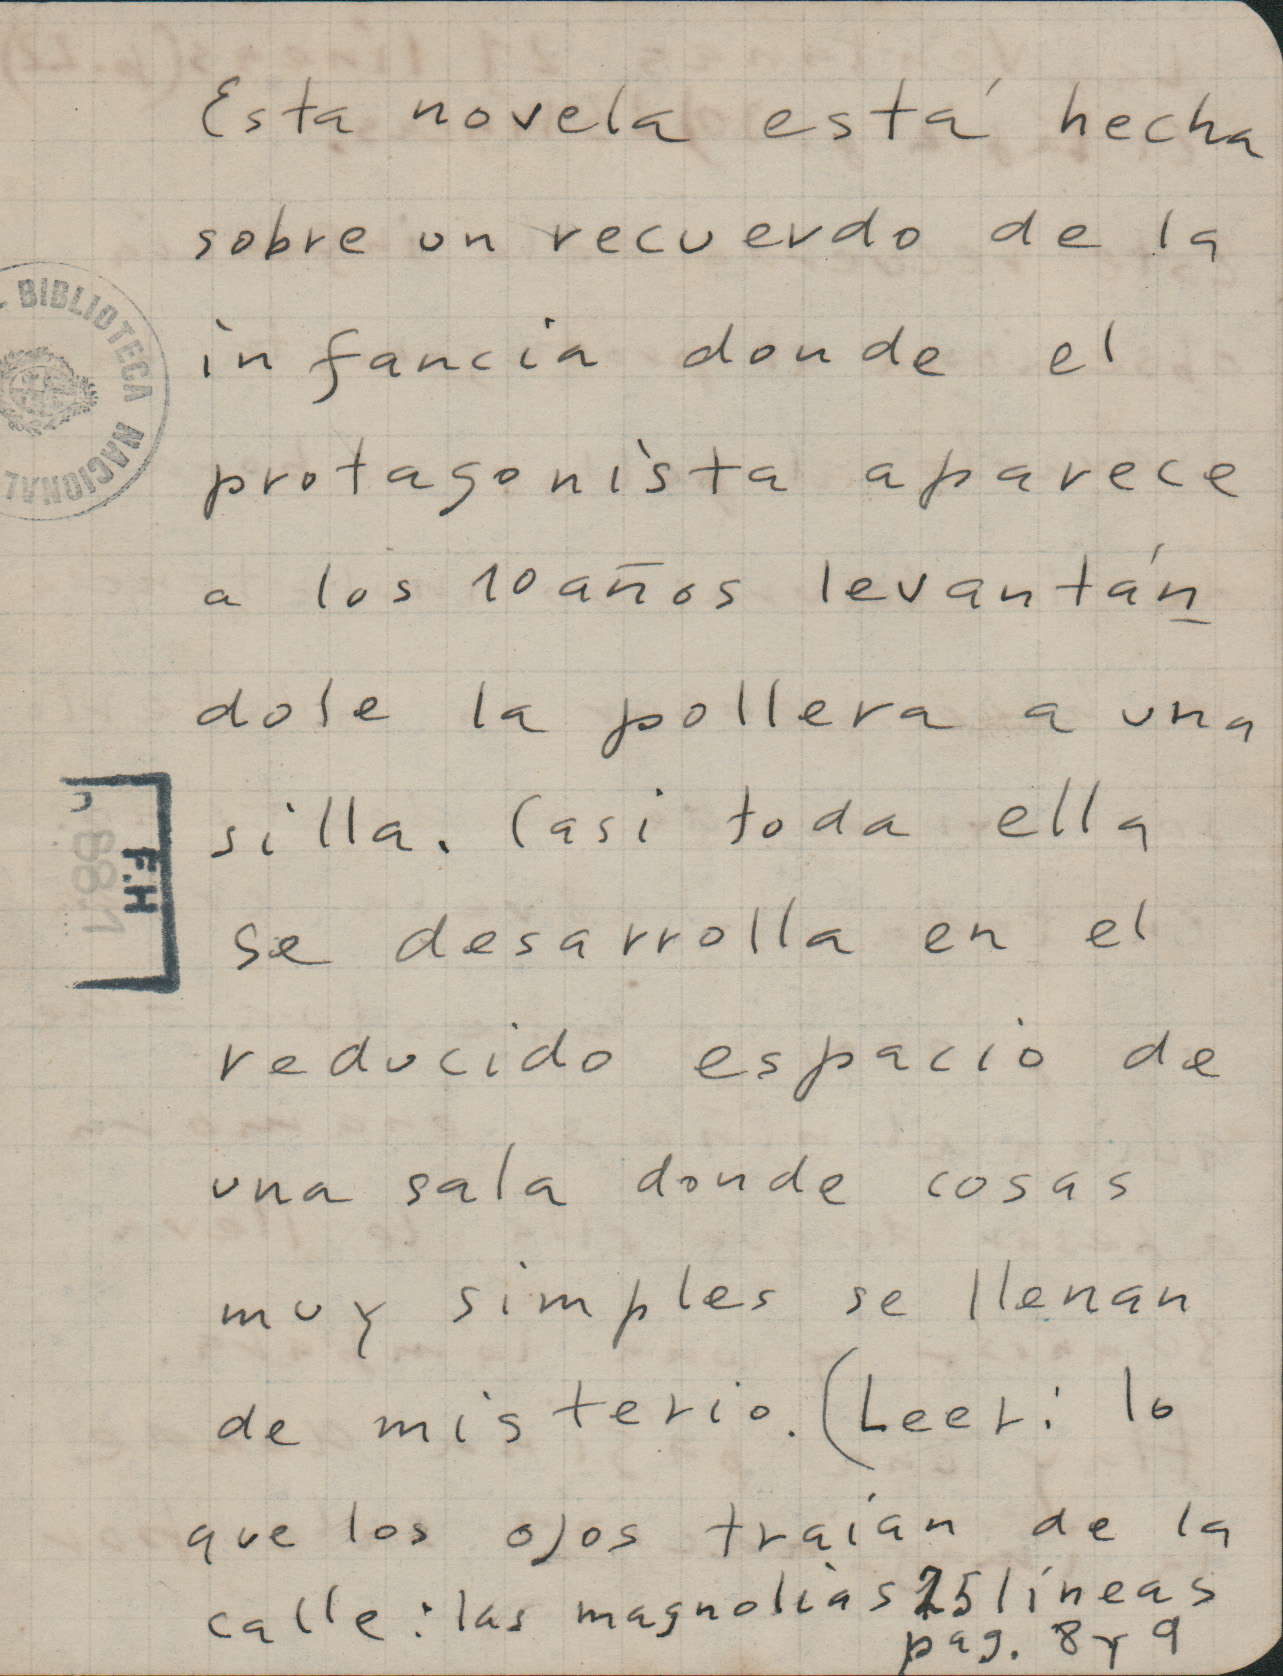 Esta novela está hecha
sobre un recuerdo de la
infancia donde el
protagonista aparece
a los 10 años levantán
dole la pollera a una
silla. Casi toda ella
se desarrolla en el
reducido espacio de
una sala donde cosas
muy simples se llenan
de misterio. (Leer: lo
que los ojos traían de la
calle: las magnolias 25 líneas
pag. 8 y 9
BIBLIOTECA NACIONAL
F.H